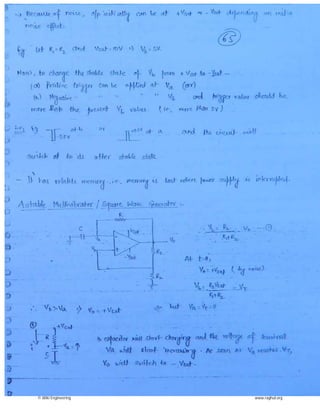 → Because of noise, o/p initially can be at +Vsat or -Vsat depending on initial
noise effect.
65
Eg let R1=R2 and Vsat=10V ⇒ Vb=5V.
Now, to change the stable state of Vo from +Vsat to -Vsat -
(a) Positive trigger can be applied at Va (or)
(b) Negative " " " " Vb and trigger value should be
more than the present Vb value. (i.e., more than 5V)
Eg at b or at a and the circuit will
switch to its other stable state
- It has volatile memory, i.e., memory is lost when power supply is interrupted.
Astable Multivibrator / Square Wave Generator -
R
C
+Vsat
-Vsat
Vo
R1
R2
At t=0,
Vo=+Vsat (by noise)
∴ Vb>Va ⇒ Vo=+Vsat
+Vsat
R
∴ capacitor will start charging and the voltage of terminal
Va will start increasing. As soon as Va reaches VT,
Vo will switch to -Vsat.
© SBM Engineering
www.raghul.org